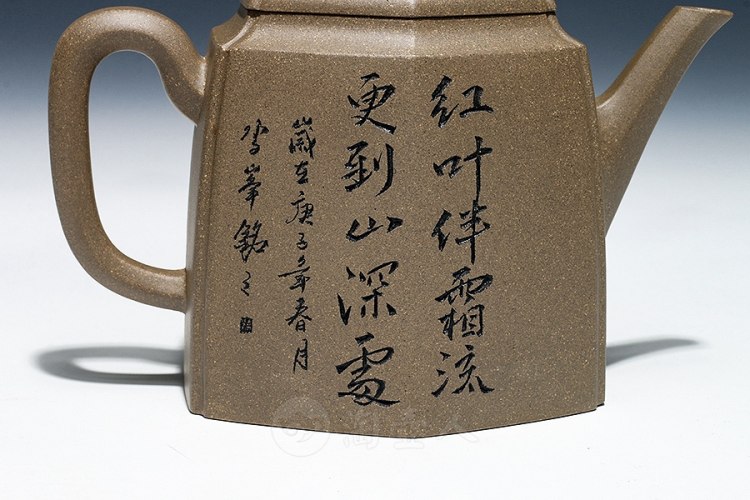 红叶伴霜流
更到山深处
岁在庚子年春月
峯铭之